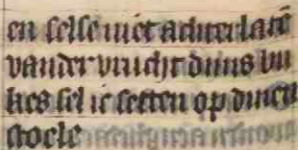 en selse niet achterlatē
vander vrucht dijns bu
kes sel ic setten op dinen
stoele